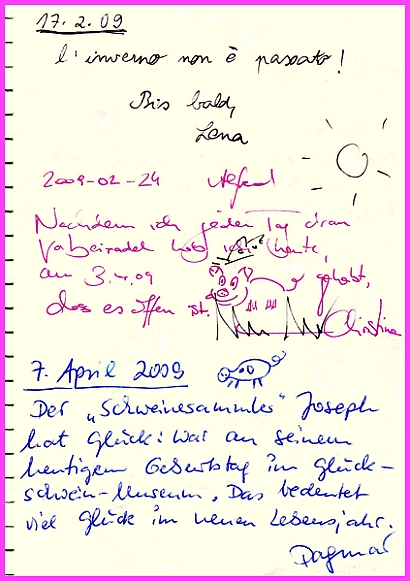 17.2.09
l'inverno non è passato!
Bis bald,
Lena
2009-02-24
Nachdem ich jeden Tag dran
vorbeiradel hab ich heute,
am 3.4.09 gehofft,
dass es offen ist.
Christina
7. April 2009
Der „Schweinesammler" Joseph
hat Glück: War an seinem
heutigem Geburtstag im Glück-
schwein-Museum. Das bedeutet
viel Glück im neuen Lebensjahr.
Dagmar